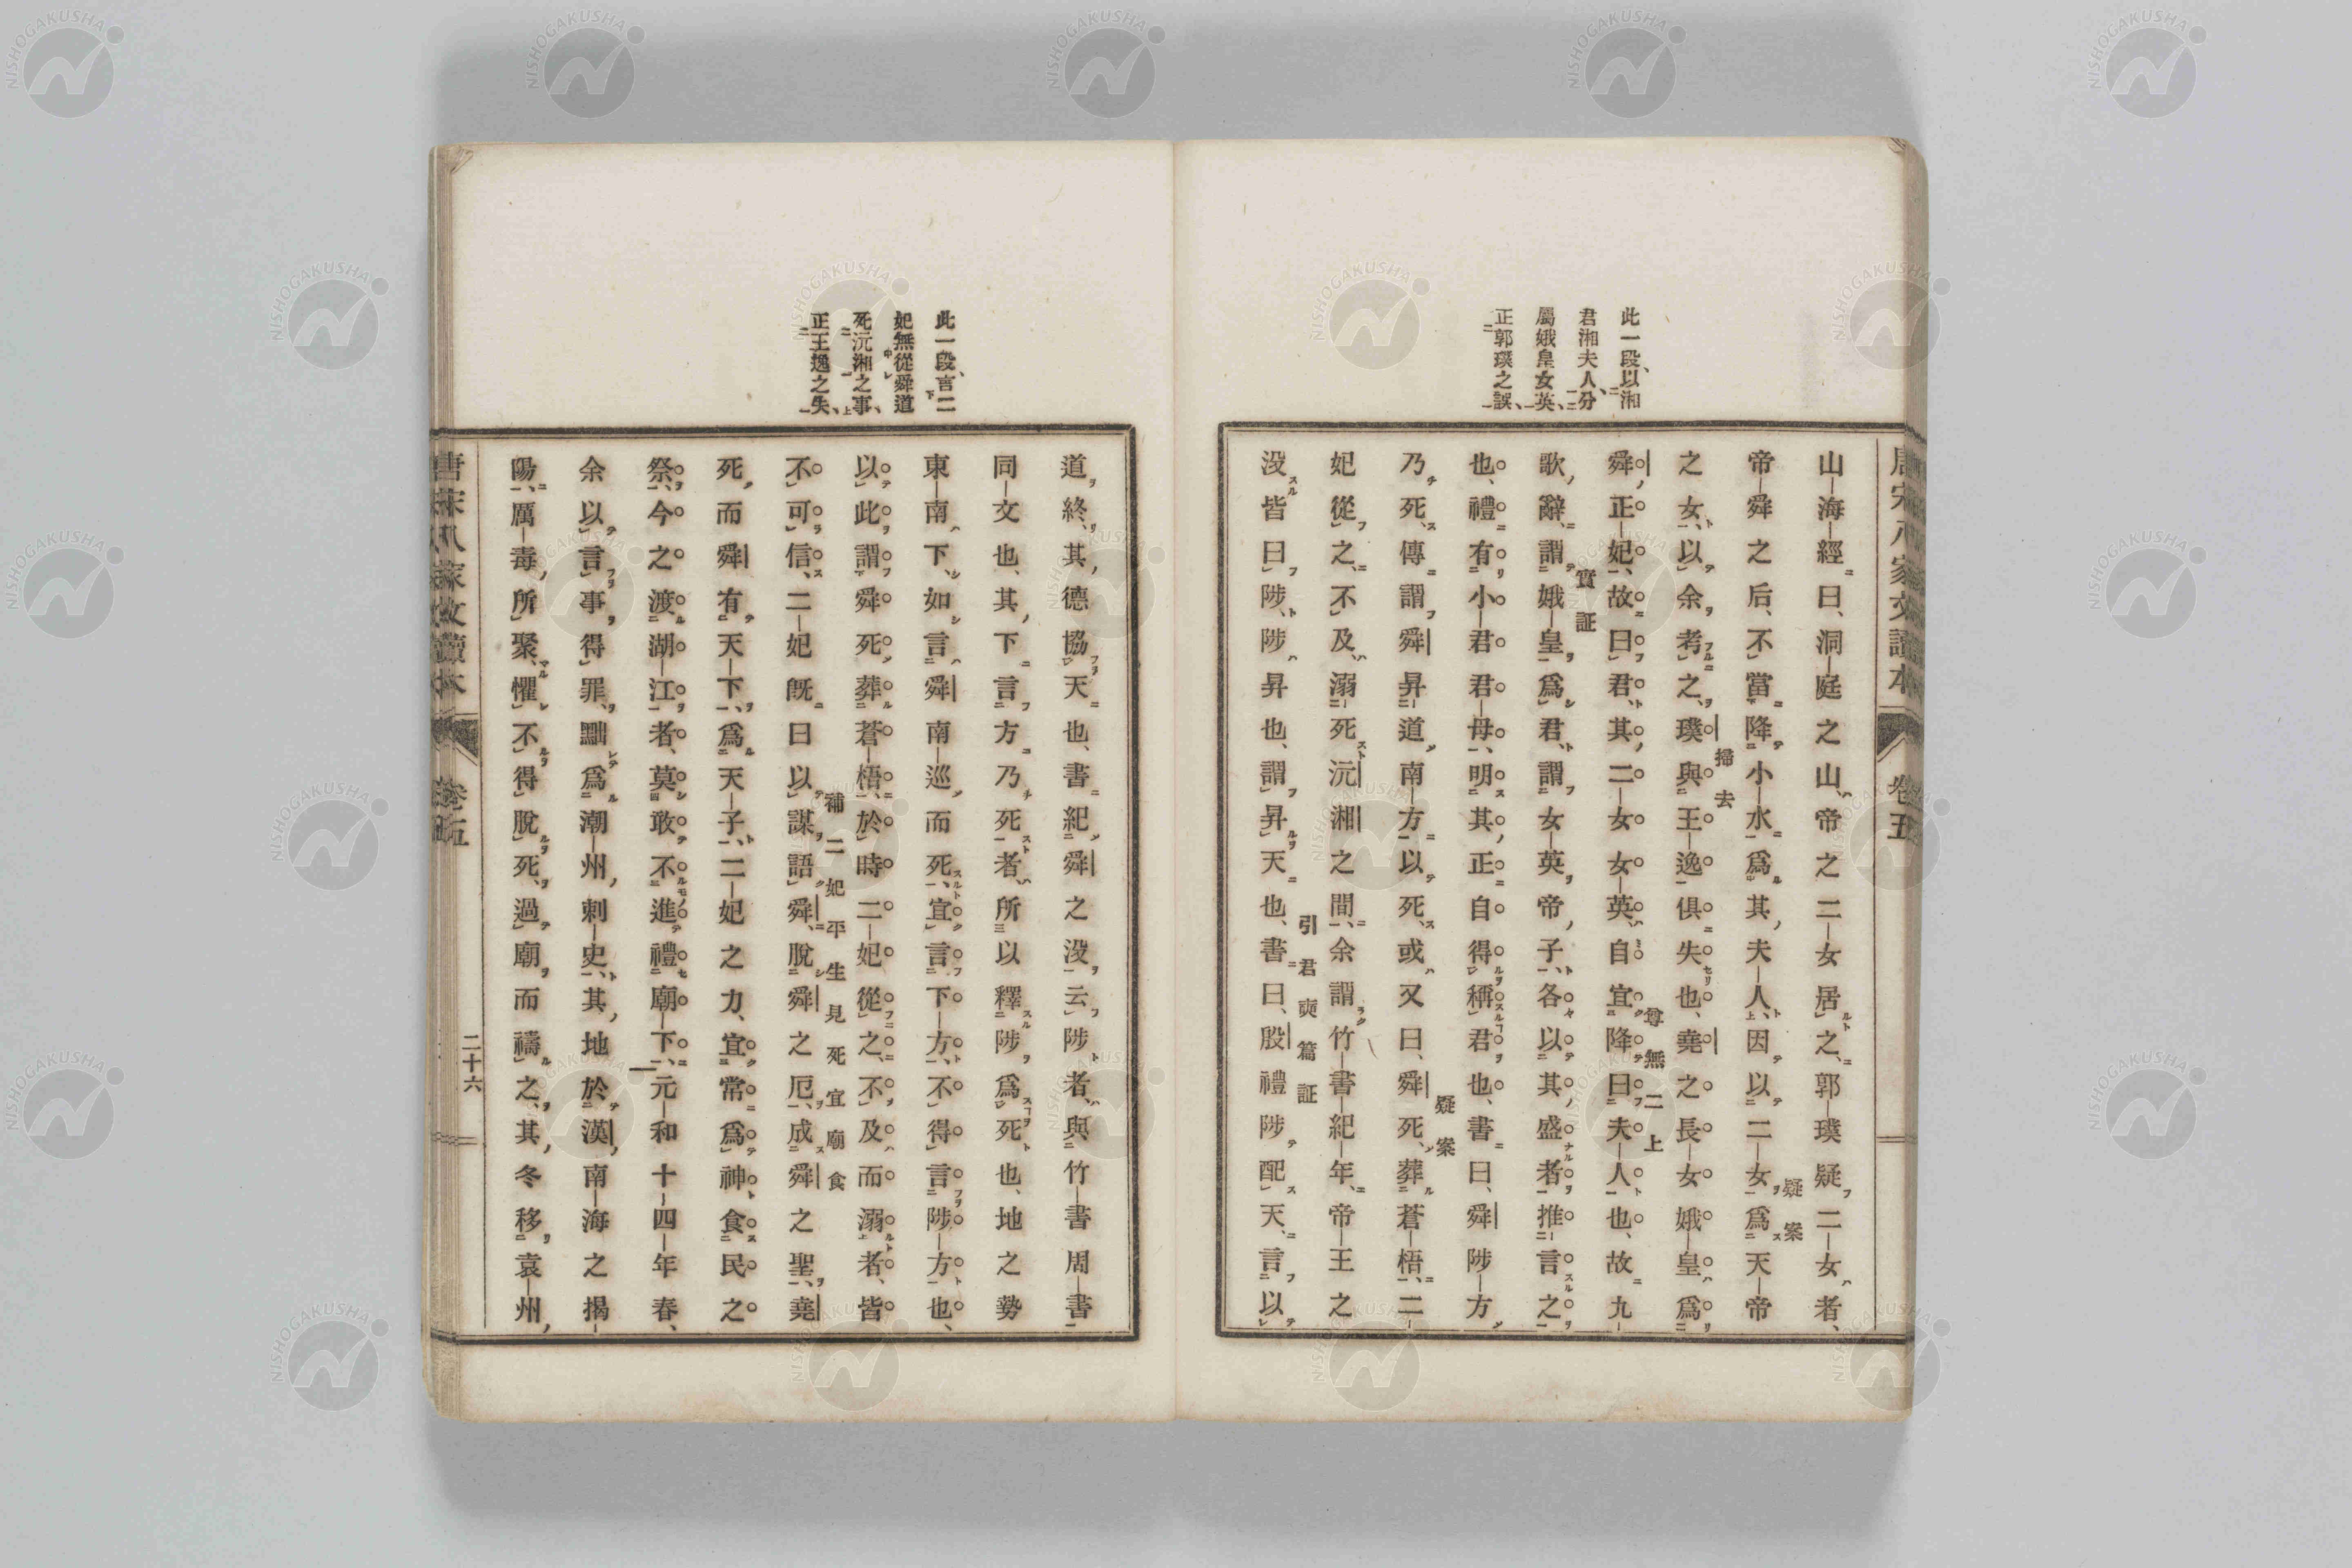 此一段、以湘
君湘夫人、分
屬娥皇女英、
正郭璞之誤、
山海經曰、洞庭之山、帝之二女居之、郭璞疑二女者、
帝舜之后、不當降小水爲其夫人、因以二女爲天帝
疑案
之女、以余考之、璞與王逸俱失也、堯之長女娥皇爲
掃去
舜正妃、故曰君、其二女女英自宜降曰夫人也、故九
尊無二上
歌辭、謂娥皇爲君、謂女英帝子、各以其盛者推言之
實証
也、禮有小君君母、明其正自得稱君也、書曰、舜陟方
乃死、傳謂舜昇道南方以死、或又曰、舜死葬蒼梧、二
疑案
妃從之不及、溺死沅湘之間、余謂竹書紀年、帝王之
沒皆曰陟、陟昇也、謂昇天也、書曰、殷禮陟配天、言以
引君奭篇証
唐宋八家文讀本
卷五
此一段、言二
妃無從舜道
死沅湘之事、
正王逸之失、
道終、其德協天也、書紀舜之沒云陟者、與竹書周書
同文也、其下言方乃死者、所以釋陟爲死也、地之勢
東南下、如言舜南巡而死、宜言下方、不得言陟方也、
以此謂舜死葬蒼梧、於時二妃從之不及而溺者、皆
不可信、二妃既曰以謀語舜、脫舜之厄、成舜之聖、堯
補二妃平生見死宜廟食
死而舜有天下、爲天子、二妃之力、宜常爲神食民之
祭、今之渡湖江者、莫敢不進禮廟下、元和十四年春、
余以言事得罪、黜爲潮州刺史、其地於漢南海之揭
陽、厲毒所聚、懼不得脫死、過廟而禱之、其冬移袁州、
唐宋八家文讀本
卷五
二十六